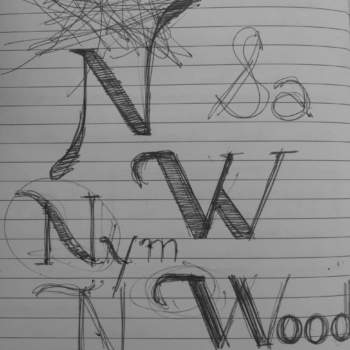 N &a
W
Nym
N Wood